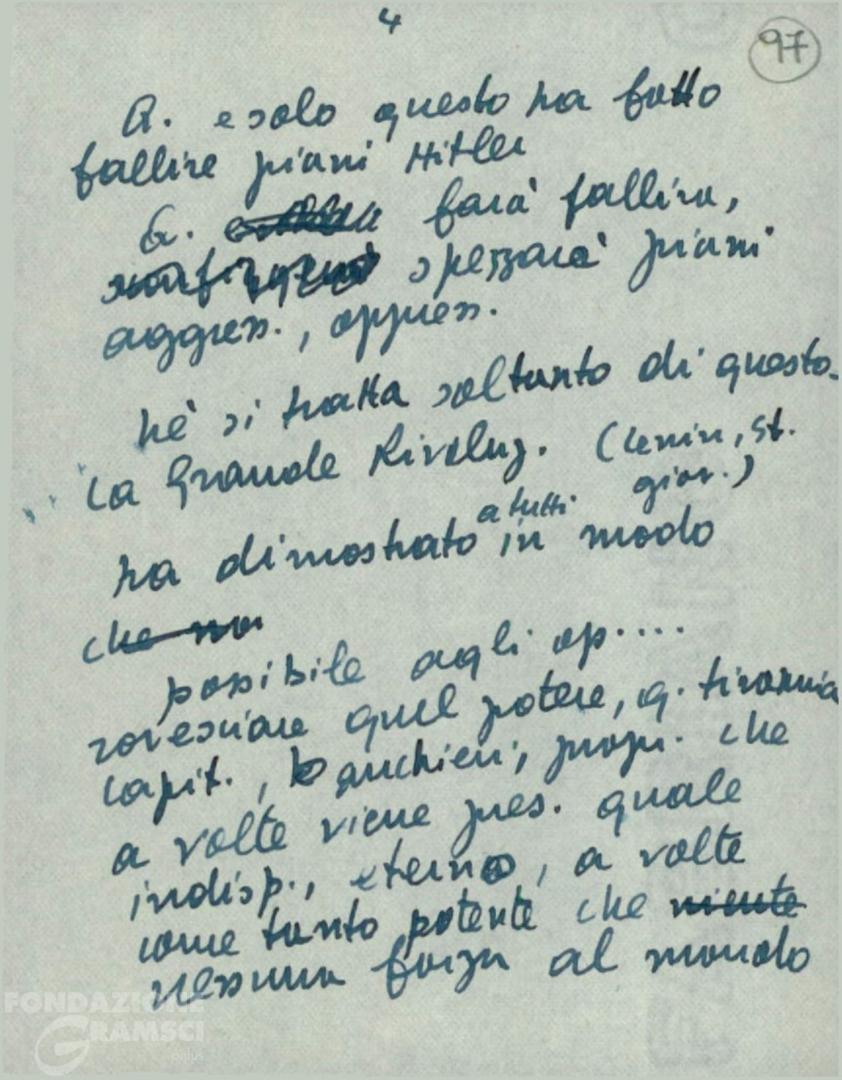 4
97
a. e solo questo ha fatto
fallire piani Hitler
G. farà fallire,
spezzarà piani
aggress., oppress.
nè si tratta soltanto di questo.
La Grande Rivoluz. (Lenin, St.
gior.)
a tutti
ha dimostrato in modo
che non
possibile agli op....
rovesciare quel potere, q. tirannia
capit., banchieri, propr. che
a volte viene pres. quale
indisp., eterno, a volte
come tanto potente che niente
nessuna forza al mondo
FONDAZIONE
GRAMSCI
onlus